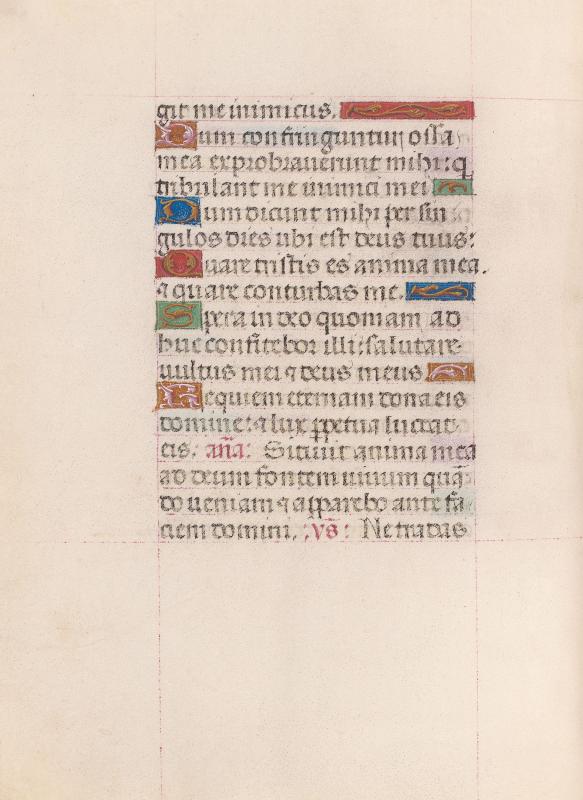 git me inimicus.
Dum confringuntur ossa
mea exprobrauerunt mihi: q
tribulant me inimici mei
Dum dicunt mihi per sin
gulos dies ubi est deus tuus:
Quare tristis es anima mea.
⁊ quare conturbas me.
Spera in deo quoniam ad
huc confitebor illi: salutare
uultus mei ⁊ deus meus
Requiem eternam dona eis
domine: ⁊ lux ꝑpetua luceat
eis. aña: Sitiuit anima mea
ad deum fontem uiuum quā
do ueniam ⁊ apparebo ante fa
ciem domini. :vs̄: Ne tradas